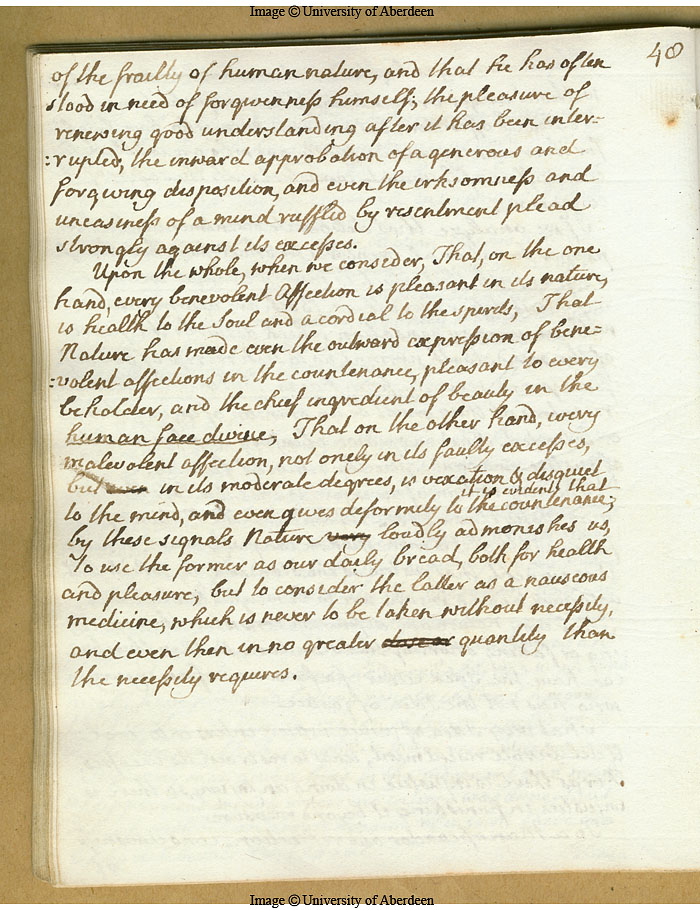 Image © University of Aberdeen
48
of the frailty of human nature, and that he has often
stood in need of forgiveness himself; the pleasure of
renewing good understanding after it has been inter=
:rupted, the inward approbation of a generous and
forgiving disposition, and even the irksomness and
uneasiness of a mind ruffled by resentment plead
strongly against its excesses.
Upon the whole, when we consider, That, on the one
hand, every benevolent Affection is pleasant in its nature,
is health to the Soul and a cordial to the spirits, That
Nature has made even the outward expression of bene=
:volent affections in the countenance, pleasant to every
beholder, and the chief ingredient of beauty in the
human face divine, That on the other hand, every
malevolent affection, not onely in its faulty excesses,
but even in its moderate degrees, is vexation & disquiet
to the mind, and even gives deformity to the countenance;
it is evident that
by these signals Nature very loudly admonishes us,
To use the former as our daily bread, both for health
and pleasure, but to consider the latter as a nauseous
medicine, which is never to be taken without necessity,
and even then in no greater dose or quantity than
the necessity requires.
Image © University of Aberdeen